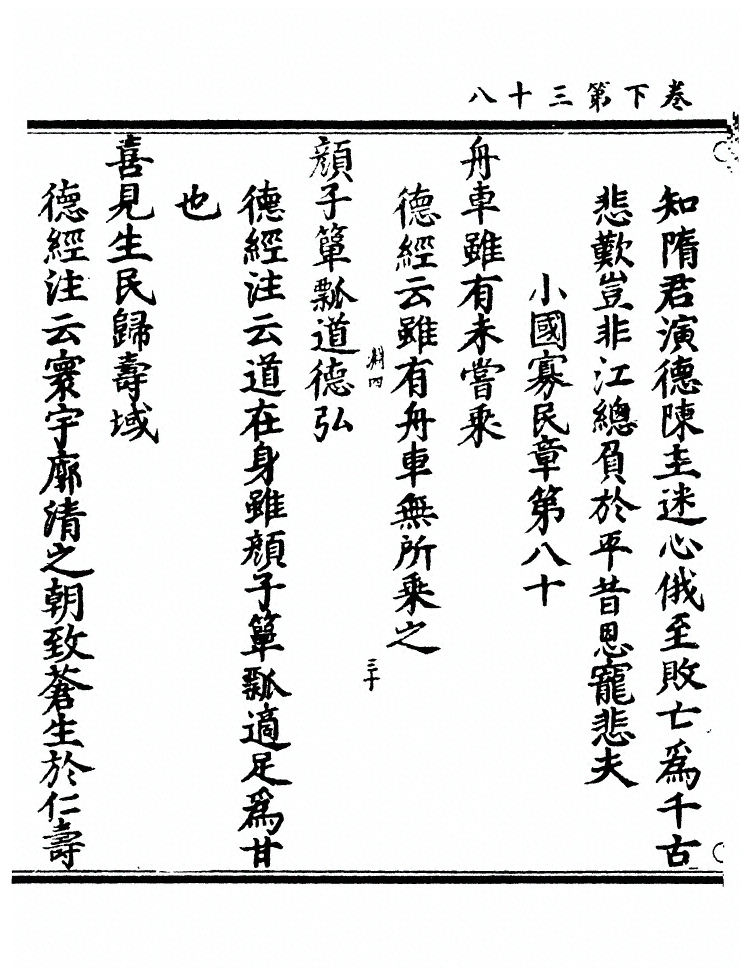 卷下第三十八
知隋君演德陳主迷心俄至敗亡爲千古
悲歎豈非江總負於平昔恩寵悲夫
小國寡民章第八十
舟車雖有未嘗乘
德經云雖有舟車無所乘之
三十
顏子簞瓢道德弘
德經注云道在身雖顏子簞瓢適足爲甘
也
喜見生民歸壽域
德經注云寰宇廓清之朝致蒼生於仁壽